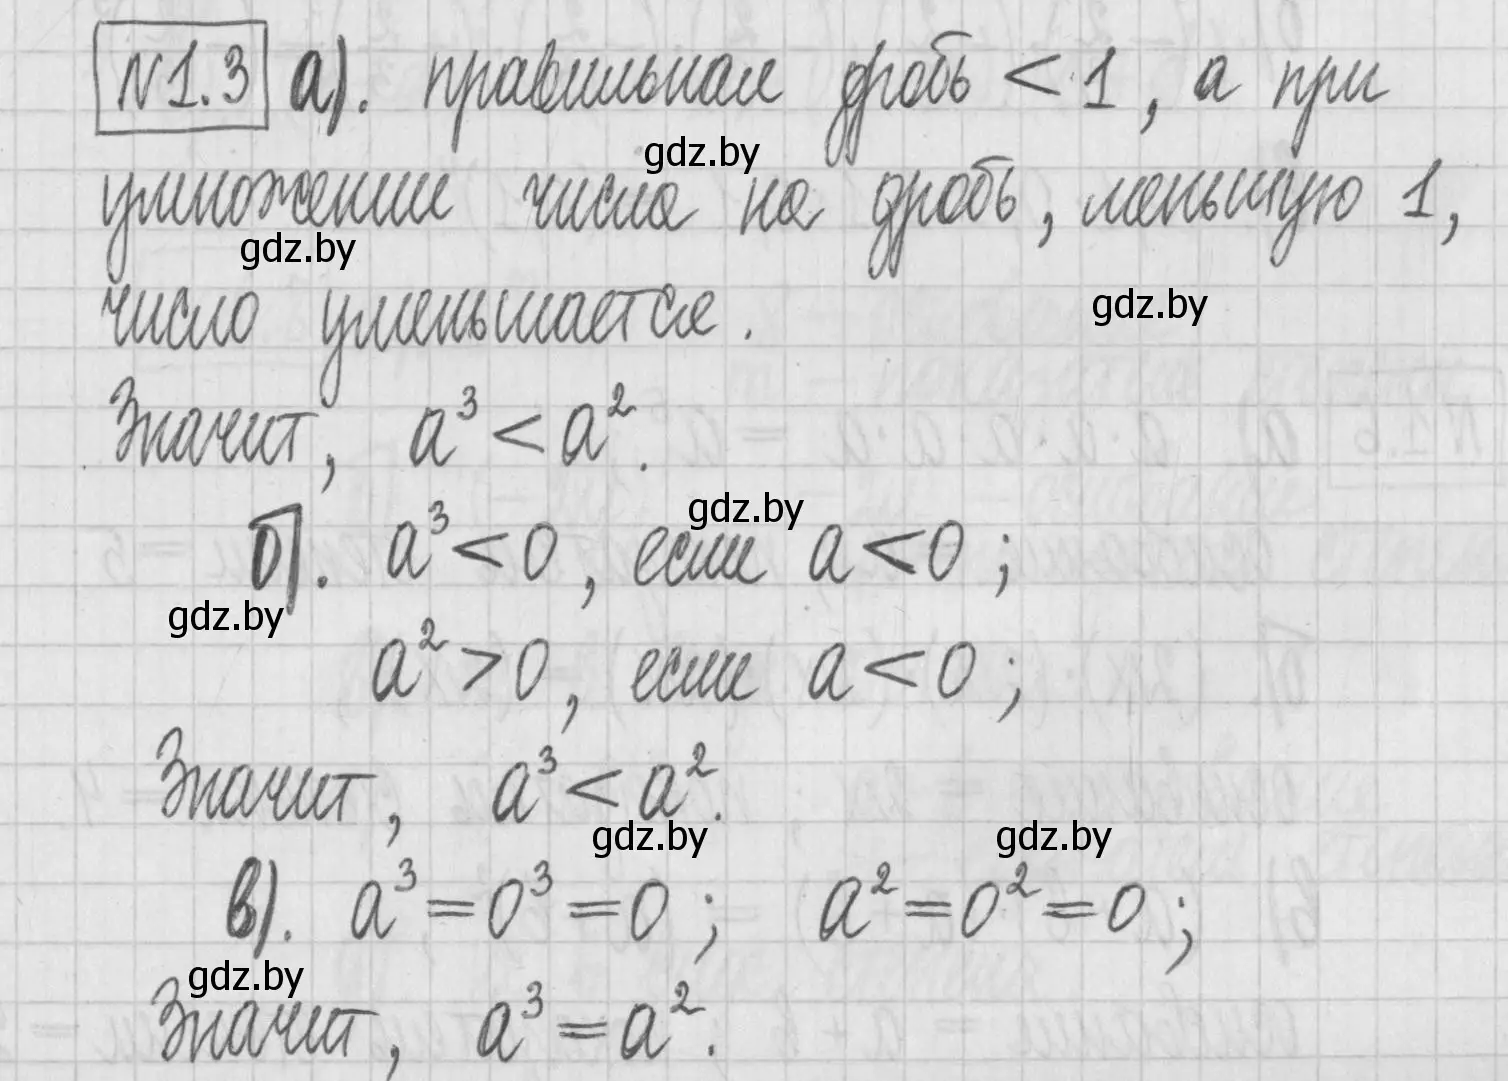 №1.3 а). правильная дробь < 1, а при
gdz.by
умножении числа на дробь, меньшую 1,
gdz.by
число уменьшается.
gdz.by
Значит, a³ < a².
gdz.by
б). a³ < 0, если a < 0;
gdz.by
a² > 0, если a < 0;
Значит, a³ < a².
gdz.by gdz.by
в). a³ = 0³ = 0; a² = 0² = 0;
gdz.by
Значит, a³ = a².